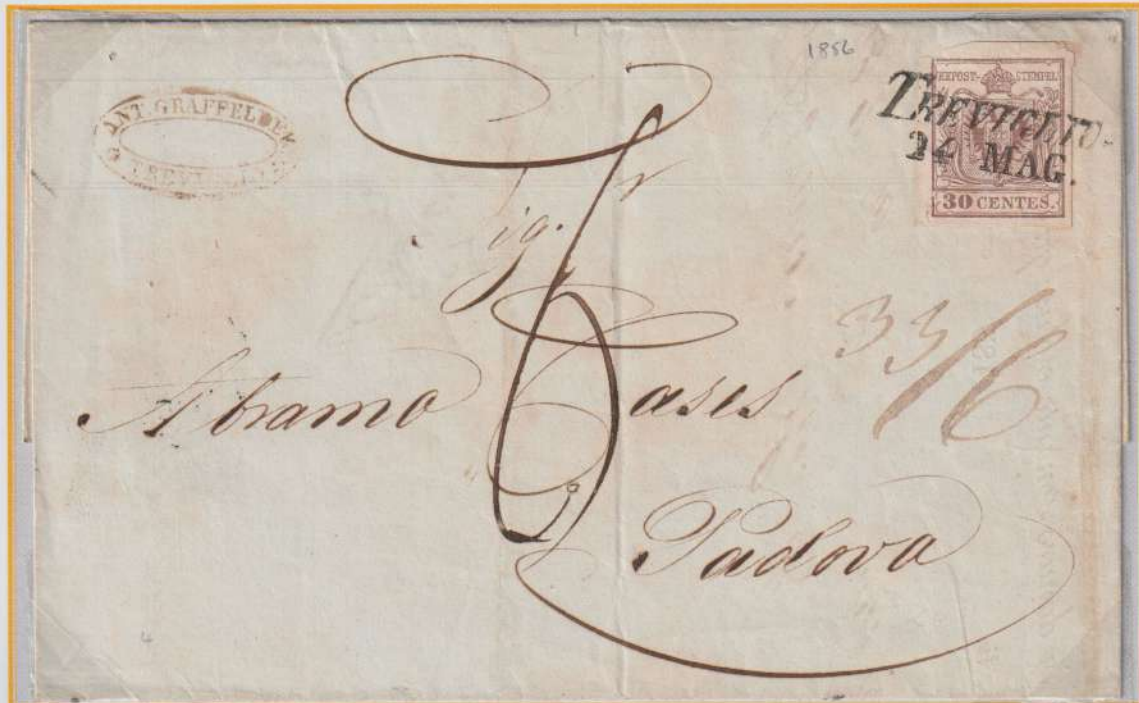 1856
ANT. GRAFFELDER
TREVIGLIO
KKPOST-STEMPEL
TREVIGLIO.
24 MAG.
30 CENTES.
Sigr
6
33/6
Abramo Cases
Padova